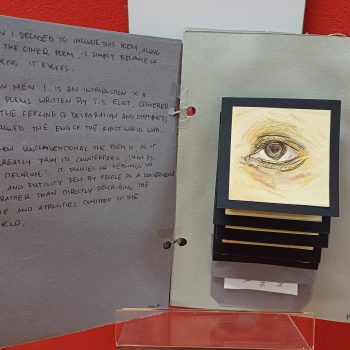 I DECIDED TO INCLUDE THIS POEM, ALONG
THE OTHER POEM, IS SIMPLY BECAUSE OF
IT EVOKES.
MEN I IS AN INTRODUCTION TO A
POEMS WRITTEN BY T.S. ELIOT, CENTERED
THE FEELING OF DESPARATION AND
THE END OF THE FIRST WORLD WAR.
HOW UNCONVENTIONAL THE POEM IS AS IT
GREATLY THAN ITS COUNTERPARTS, SUCH AS
DECORUM". IT FOCUSES ON FEELINGS OF
AND FUTILITY FELT BY PEOPLE AS A CONSEQUENCE
RATHER THAN DIRECTLY DESCRIBING THE
AND ATROCITIES COMMITED IN THE